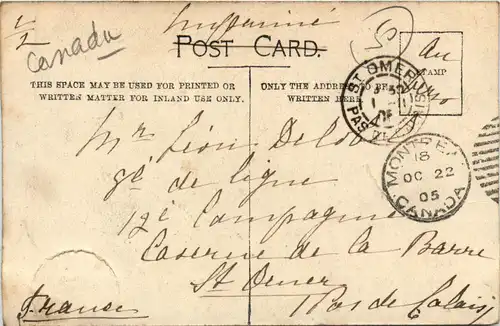 1/2
Imprimé
Canada
POST CARD.
THIS SPACE MAY BE USED FOR PRINTED OR
WRITTEN MATTER FOR INLAND USE ONLY.
ONLY THE ADDRESS TO BE
WRITTEN HERE.
au
STAMP
verso
ST OMER
PAS DE CALAIS
MONTREAL
18
OC 22
05
CANADA
Mr Léon
8e de ligne
12e Compagnie
Caserne de la Barre
St Omer
France
Pas de Calais